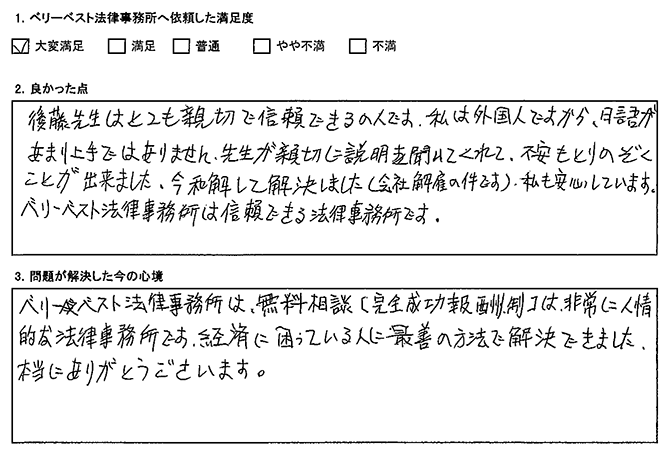 1. ベリーベスト法律事務所へ依頼した満足度
☑ 大変満足 □ 満足 □ 普通 □ やや不満 □ 不満
2. 良かった点
後藤先生はとても親切で信頼できるの人です. 私は外国人ですから、日語が
あまり上手ではありません. 先生が親切に説明を聞いてくれて、不安もとりのぞく
ことが出来ました、今和解して解決しました(会社解雇の件です). 私も安心しています.
ベリーベスト法律事務所は信頼できる法律事務所です.
3. 問題が解決した今の心境
ベリーベスト法律事務所は、無料相談[完全成功報酬制]は、非常に人情
的な法律事務所です. 経済に困っている人に最善の方法で解決できました、
本当にありがとうございます。